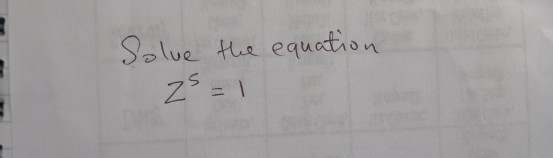 Solve the equation
z⁵ = 1